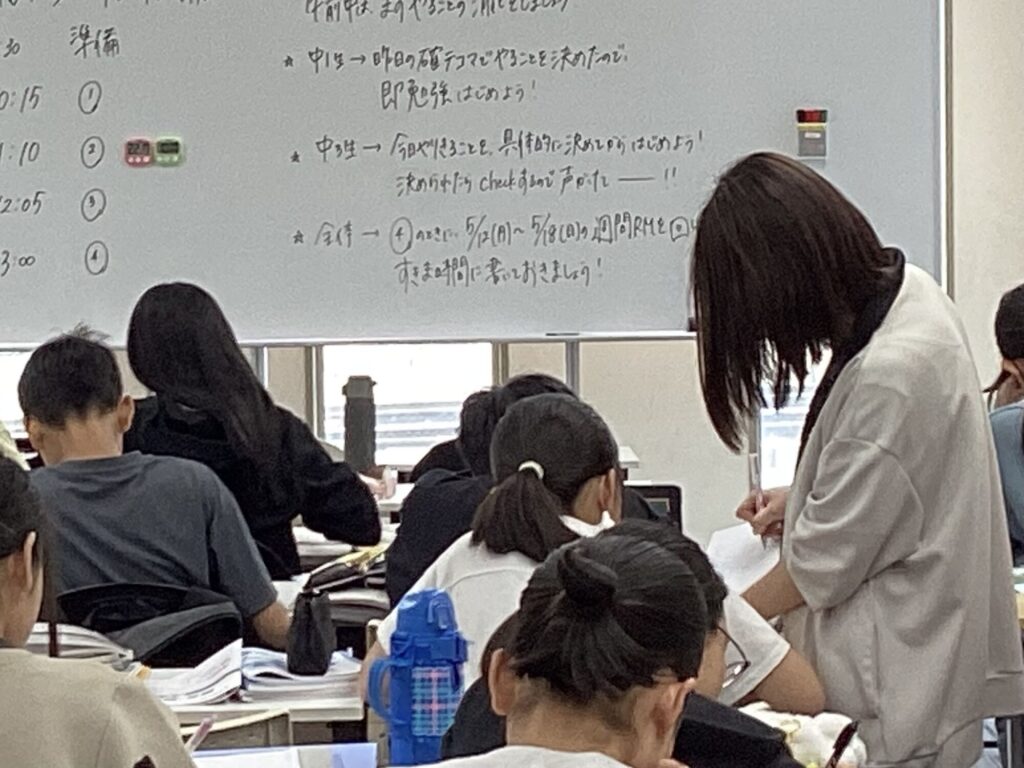 午前中は、まずやることの消化をしましょう
:30 準備
★ 中1生 → 昨日の確テコマでやることを決めたので、
0:15 ①
即勉強はじめよう!
1:10 ②
★ 中3生 → 今日やりきることを、具体的に決めてからはじめよう!
決められたら checkするので 声かけて ー!!
2:05 ③
★ 全体 → ④のときに、5/12(月)~5/18(日)の週間RMを回
3:00 ④
すきま時間に書いておきましょう!